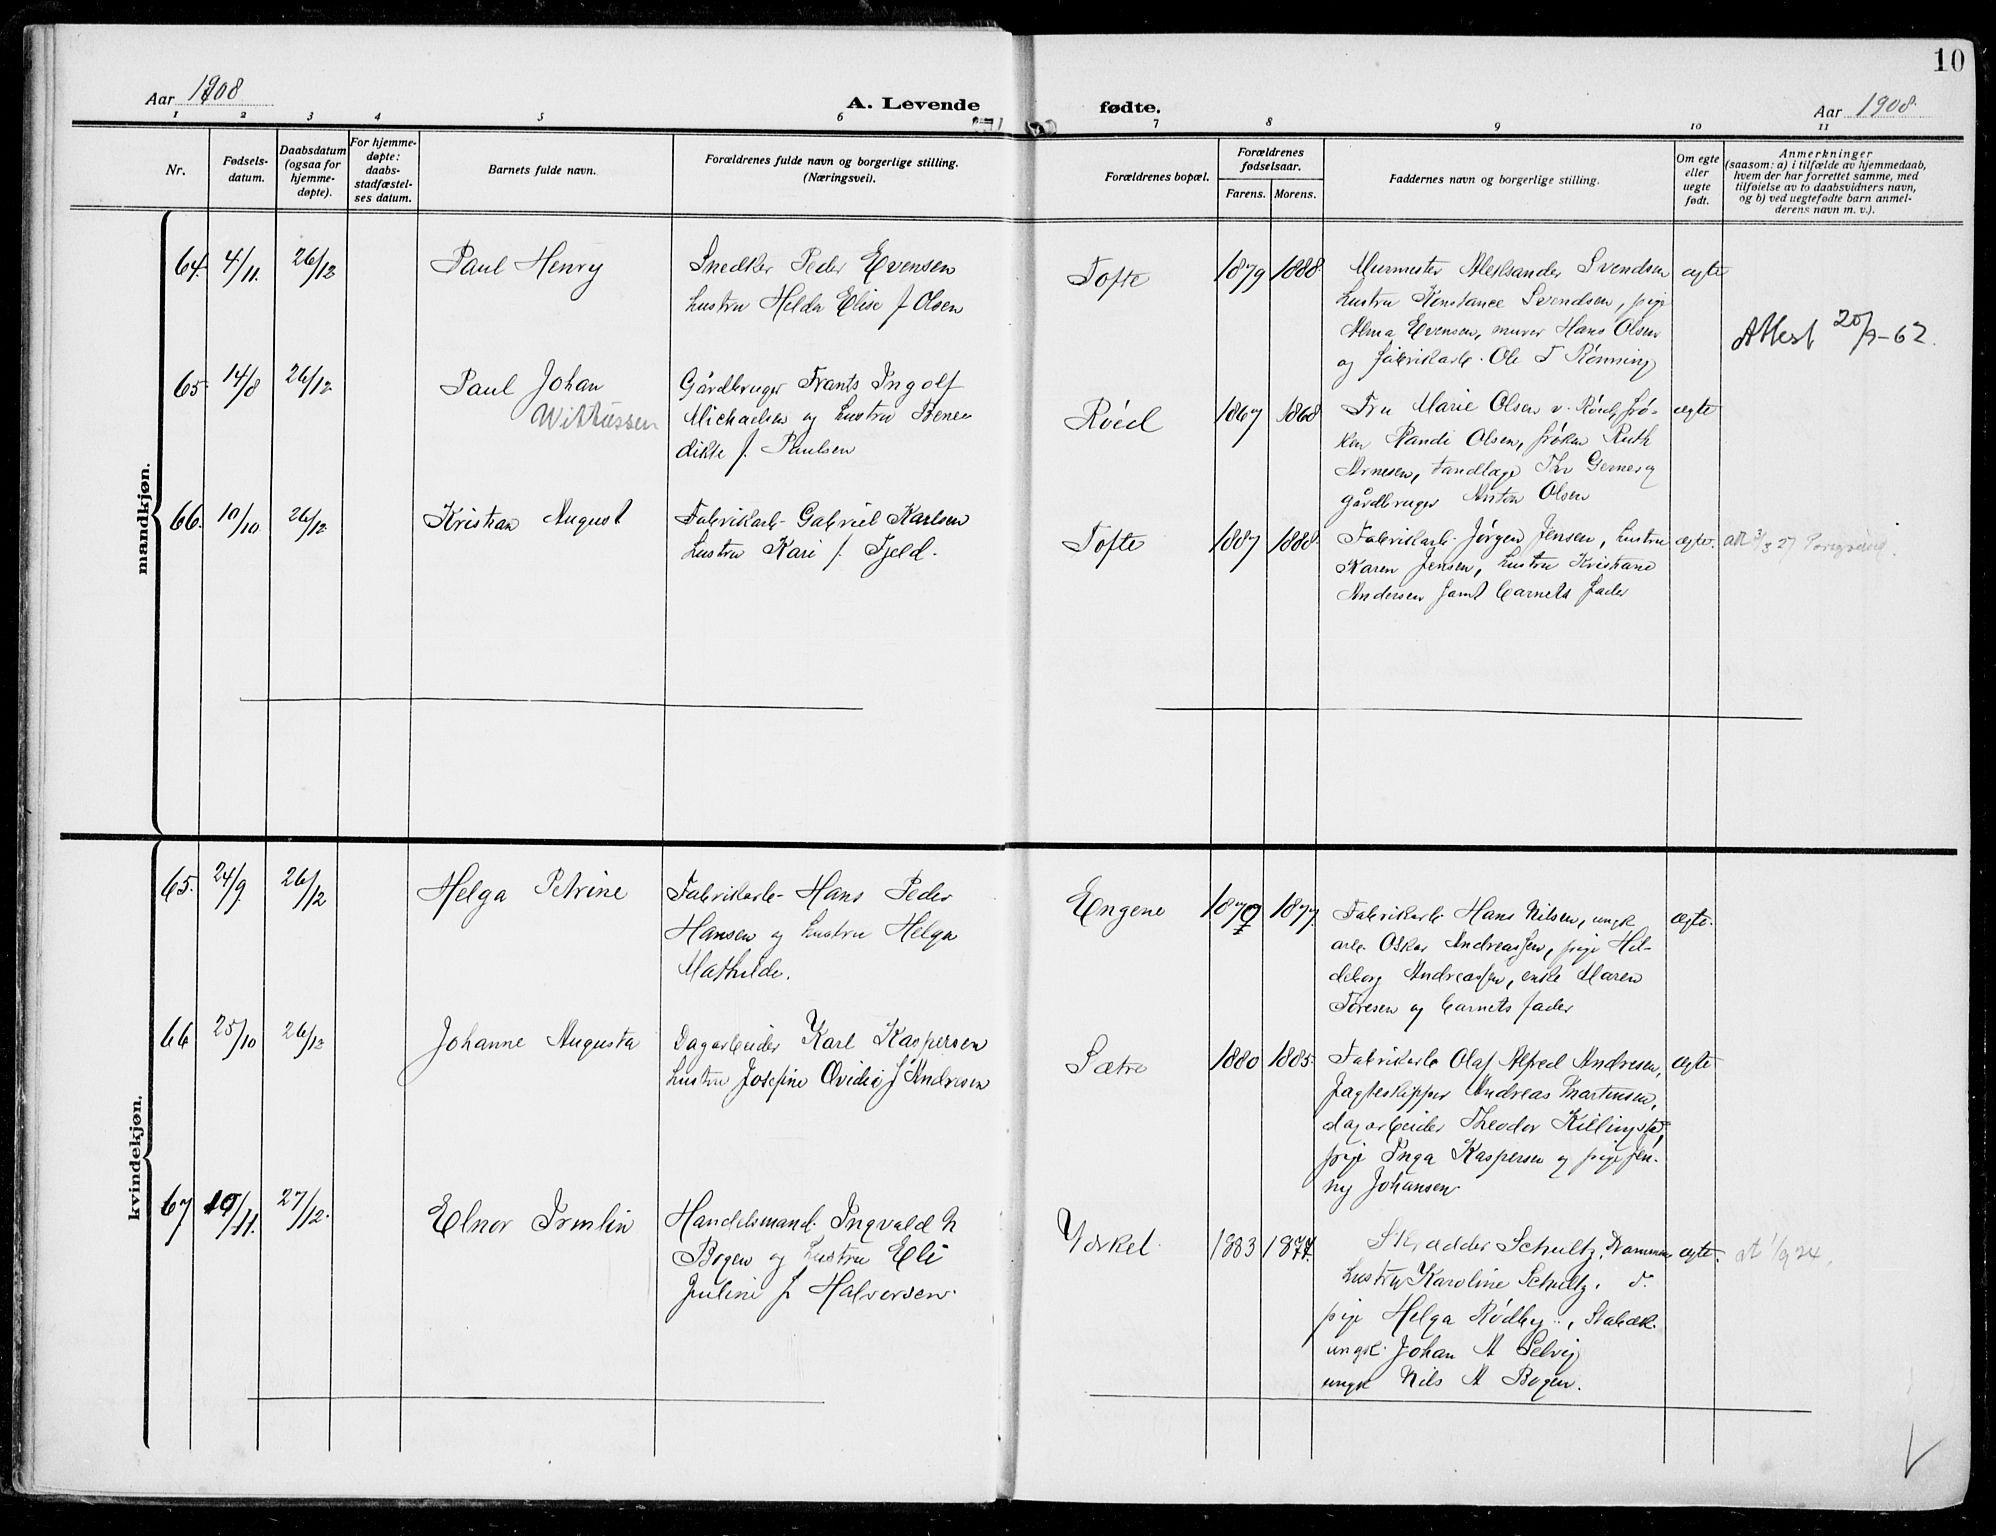 10
Aar 1908
A. Levende
fødte.
Aar 1908.
1 2 3 4 5 6 7 8 9 10 11
Nr.
Fødsels-
datum.
Daabsdatum
(ogsaa for
hjemme-
døpte).
For hjemme-
døpte:
daabs-
stadfæstel-
ses datum.
Barnets fulde navn.
Forældrenes fulde navn og borgerlige stilling.
(Næringsvei).
Forældrenes bopæl.
Forældrenes
fødselsaar.
Farens. Morens.
Faddernes navn og borgerlige stilling.
Om egte
eller
uegte
født.
Anmerkninger
(saasom: a) i tilfælde av hjemmedaab,
hvem der har forrettet samme, med
tilføielse av to daabsvidners navn,
og b) ved uegtefødte barn anmel-
derens navn m. v.).
mandkjøn.
64. 4/11. 26/12
Paul Henry
Snedker Peder Evensen
hustru Helda Elise f Olsen
Tofte
1879 1888.
Murmester Aleksander Svendsen
hustru Konstance Svendsen, pige
Alma Evensen, murer Hans Olsen
og fabrikarb. Ole T Rønning
ægte
Attest 20/9-62.
65. 14/8 26/12
Paul Johan
Wittussen
Gårdbruger Frants Ingolf
Michaelsen og hustru Bene
dikte f. Paulsen
Røed
1867 1868
Fru Marie Olsen v. Røed, frø-
ken Randi Olsen, frøken Ruth
Arnesen, tandlæge Thv Gerner og
gårdbruger Anton Olsen
ægte
66. 10/10. 26/12
Kristian August
Fabrikarb- Gabriel Karlsen
hustru Kari f. Fjeld.
Tofte
1887 1888.
Fabrikarb. Jørgen Jensen, hustru
Karen Jensen, hustru Kristiane
Andersen samt barnets fader
ægte.
att 3/8 27
kvindekjøn.
65. 24/9. 26/12
Helga Petrine
Fabrikarb- Hans Peder
Hansen og hustru Helga
Mathilde.
Engene
1879 1877.
Fabrikarb. Hans Nilsen, ungk
arb Oskar Andreassen, pige Hil-
deborg Andreassen, enke Maren
Toresen og barnets fader
ægte.
66 25/10 26/12
Johanne Augusta
Dagarbeider Karl Kaspersen
hustru Josefine Ovidia f Andresen
Sætre
1880 1885.
Fabrikarb Olaf Alfred Andresen,
jagteskipper Andreas Martinsen,
dagarbeider Theodor Killingstø,
pige Inga Kaspersen og pige Jen-
ny Johansen
ægte
67 19/11. 27/12.
Elnor Irmlin
Handelsmand. Ingvald N
Bogen og hustru Eli
Juline f Halvorsen.
Yærkel.
1883 1877.
Skrædder Schultz, Drammen
hustru Karoline Schultz. d.
pige Helga Rødby.., Stabæk.
ungk. Johan A Selvig
ungk Nils A Bogen.
ægte.
at 1/9 24.